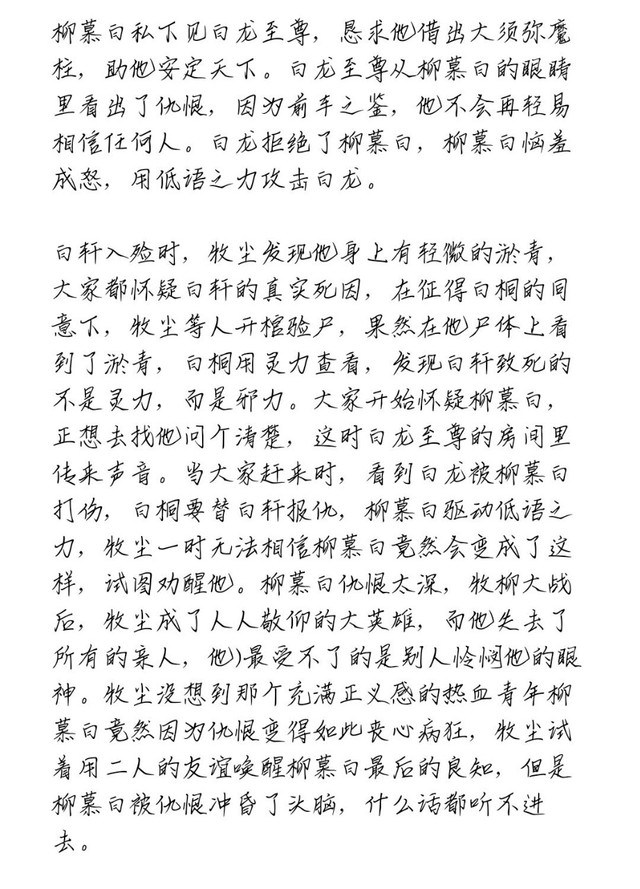 柳慕白私下见白龙至尊，恳求他借出大须弥魔
柱，助他安定天下。白龙至尊从柳慕白的眼睛
里看出了仇恨，因为前车之鉴，他不会再轻易
相信任何人。白龙拒绝了柳慕白，柳慕白恼羞
成怒，用低语之力攻击白龙。
白轩入殓时，牧尘发现他身上有轻微的淤青，
大家都怀疑白轩的真实死因，在征得白桐的同
意下，牧尘等人开棺验尸，果然在他尸体上看
到了淤青，白桐用灵力查看，发现白轩致死的
不是灵力，而是邪力。大家开始怀疑柳慕白，
正想去找他问个清楚，这时白龙至尊的房间里
传来声音。当大家赶来时，看到白龙被柳慕白
打伤，白桐要替白轩报仇，柳慕白驱动低语之
力，牧尘一时无法相信柳慕白竟然会变成了这
样，试图劝醒他。柳慕白仇恨太深，牧柳大战
后，牧尘成了人人敬仰的大英雄，而他失去了
所有的亲人，他)最受不了的是别人怜悯他的眼
神。牧尘没想到那个充满正义感的热血青年柳
慕白竟然因为仇恨变得如此丧心病狂，牧尘试
着用二人的友谊唤醒柳慕白最后的良知，但是
柳慕白被仇恨冲昏了头脑，什么话都听不进
去。